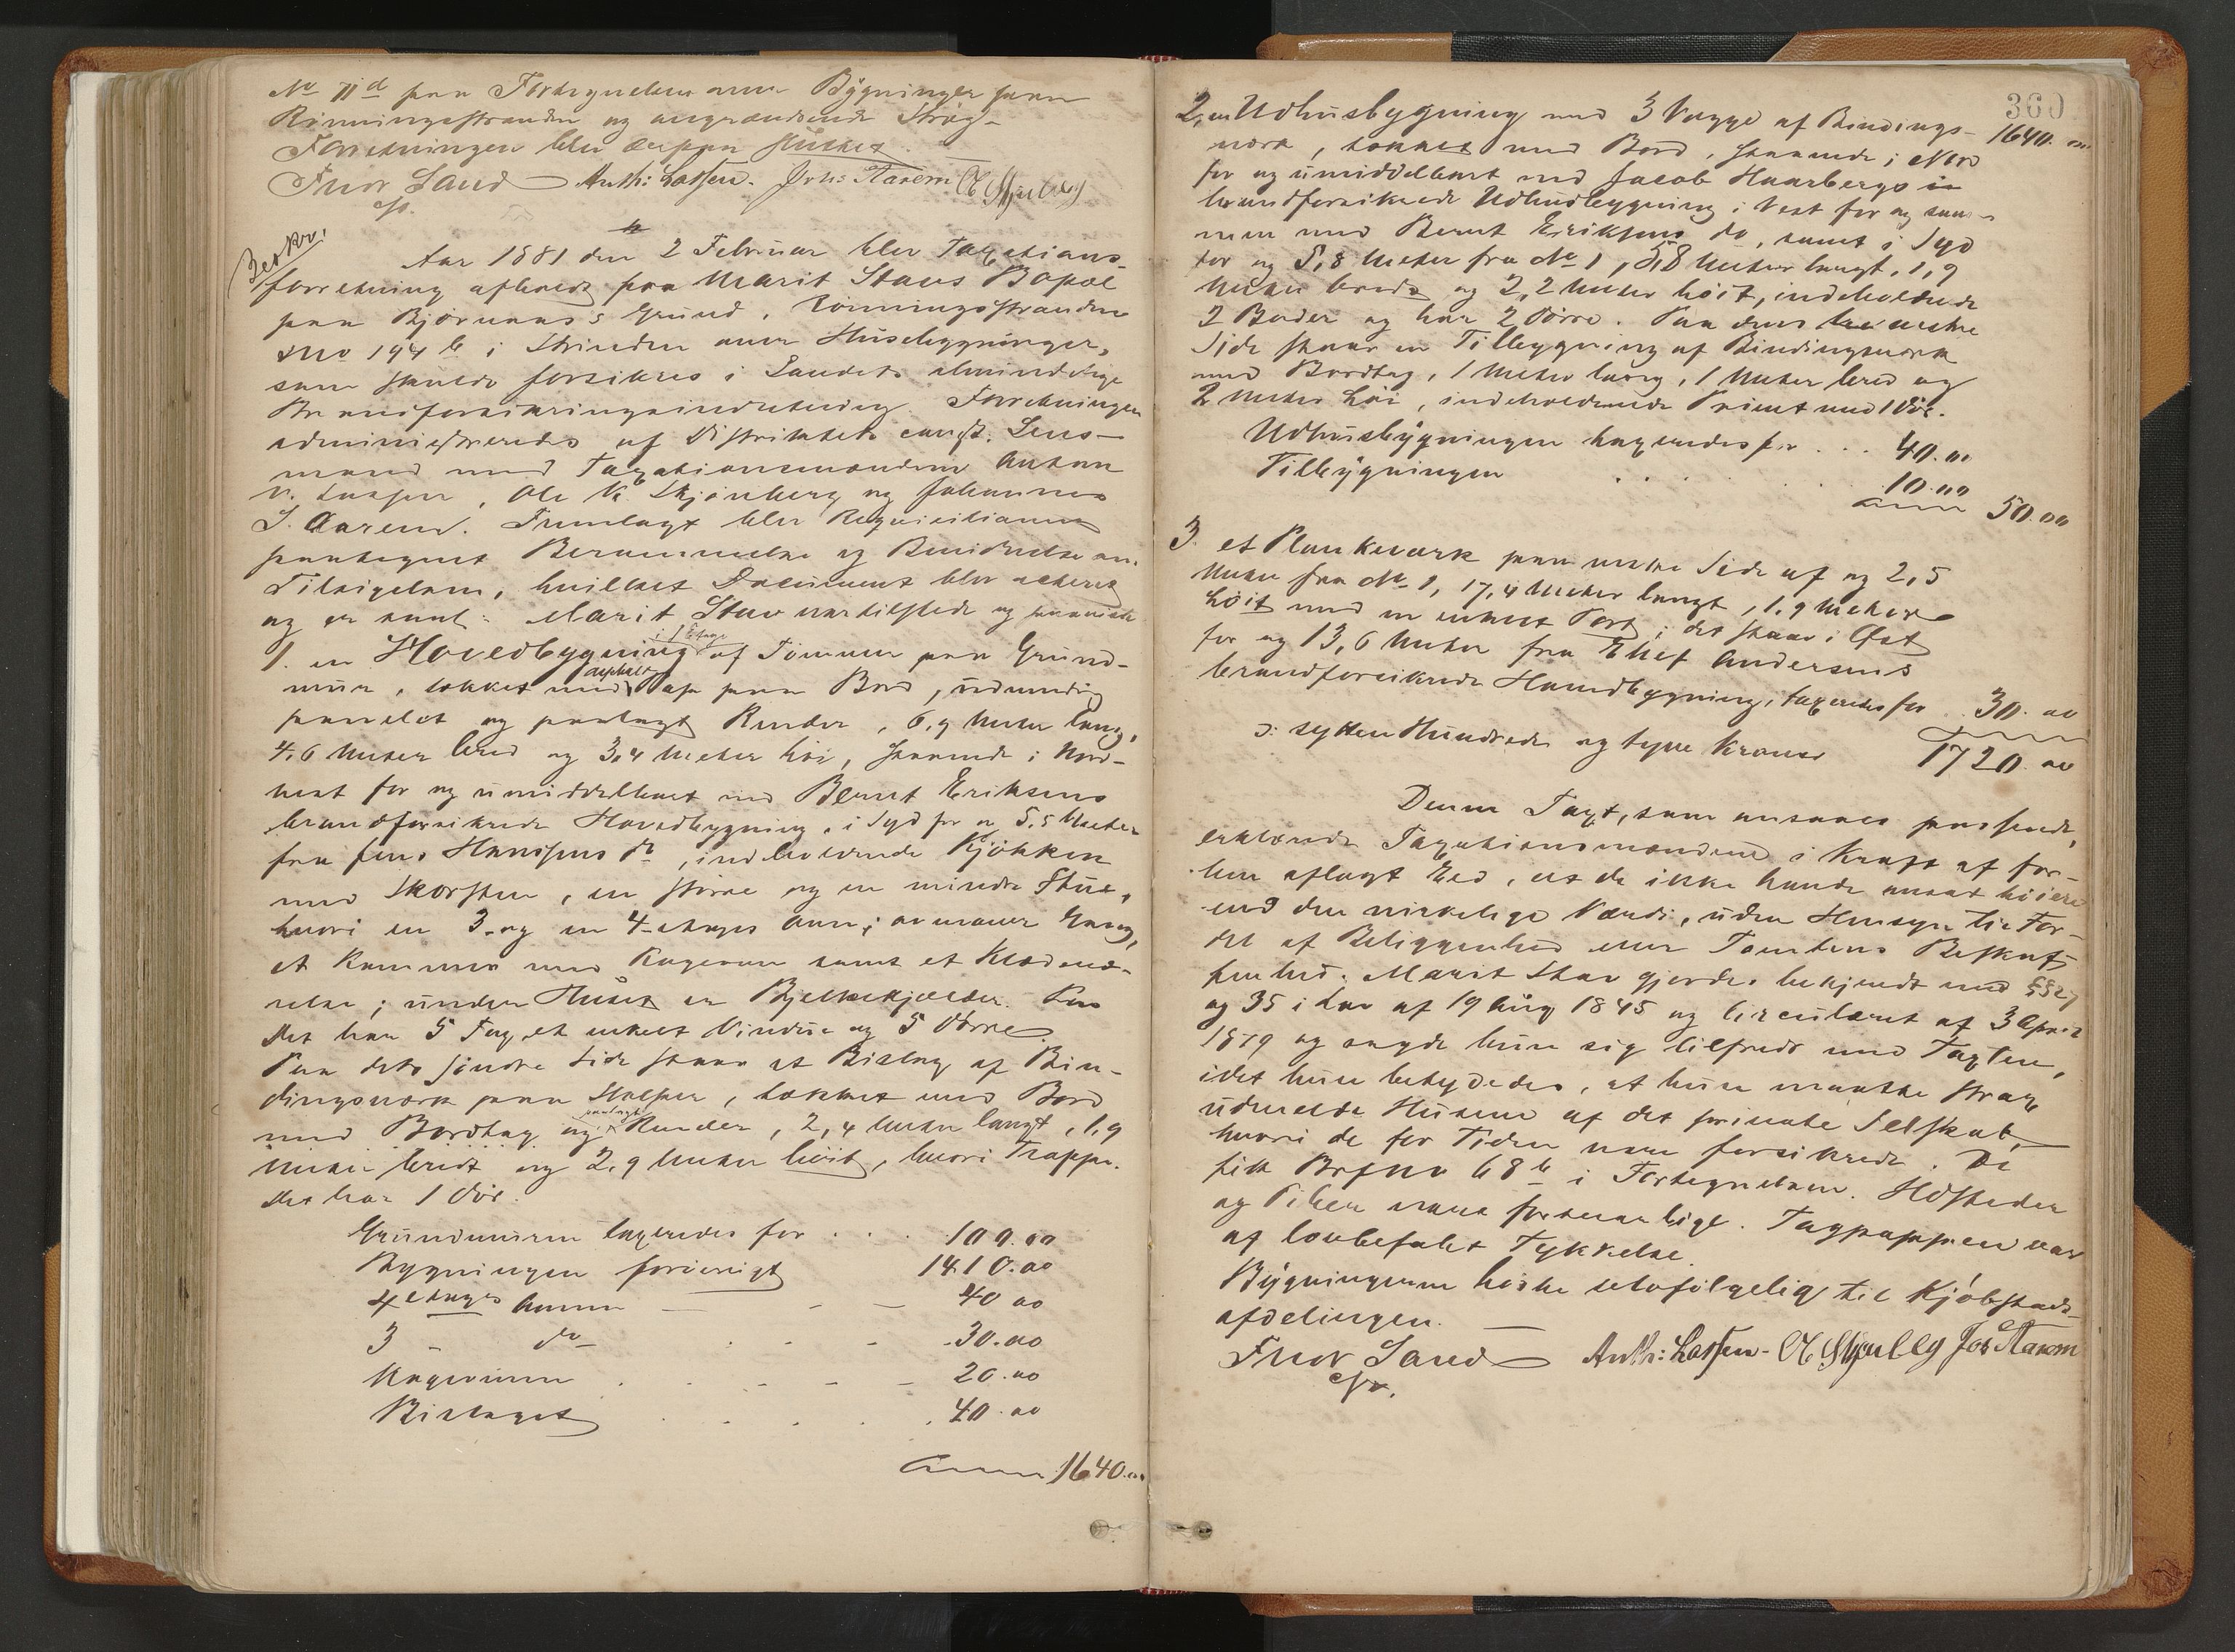 No 71d paa Fortegnelsen over Bygninger paa
Rönningsstranden og angrændsende Strög.
Forretningen blev derpaa sluttet.
Fredr Sand Anth: Lassen. Johs Aarem O K Skjønberg
cst.
Beskr.
Aar 1881 den 2 Februar blev Taxations-
forretning afholdt paa Marit Staus Bopæl
paa Bjørnaas's Grund, Rönningsstranden
Mno 194 b i Strinden over Husebygninger,
som skulde forsikres i Landets almindelige
Brandforsikringsindretning. Forretningen
administreredes af Distriktets const. Lens-
mand med Taxationsmændene Anton
N. Lassen, Ole K. Skjønberg og Johannes
S. Aarem. Fremlagt blev Requisitionen
paategnet Berammelse og Bevidnelse om
Tilsigelsen, hvilket Document blev acteret
og er saal: Marit Stav var tilstede og paaviste
1. en Hovedbygning i 1 Etage af Tömmer paa Grund-
mur, tækket med asphalt Pap paa Bord, udvendig
panelet og paalagt Render, 6,9 Meter lang,
4,6 Meter bred og 3,4 Meter høi, staaende i Nord-
vest for og umiddelbart ved Bernt Eriksens
brandforsikrede Hovedbygning, i Syd for og 5,5 Meter
fra Jens Hanssens do, indeholdende Kjøkken
med Skorsten, en større og en mindre Stue,
hvori en 3- og en 4-etages Ovn; ovenover Gang,
et Kammer med Kogeovn samt et Klædevæ-
relse; under Huset en Bjelkekjælder.
Det har 5 Fag, et enkelt Vindue og 5 Dörre.
Paa dets söndre Side staar et Bislag af Bin-
dingsværk paa Stolper, tækket med Bord
med Bordtag og paalagt Render, 2,4 Meter langt, 1,9
Meter bredt og 2,9 Meter höit, hvori Trappe.
Det har 1 Dör.
Grundmuren taxeredes for . . . 100.00
Bygningen forövrigt 1410.00
4 etages Ovnen — - — 40 00
3 - do - . . - 30.00
Kogeovnen . . - - — 20.00
Bislaget . . . . . 40.00
1640.00
360
2, en Udhusbygning med 3 Vægge af Bindings- 1640.00
værk, tækket med Bord, staaende i Nord
for og umiddelbart ved Jacob Haarbergs
brandforsikrede Udhusbygning, i Vest for og sam-
men med Bernt Eriksens do, samt i Syd
for og 5,8 Meter fra No 1, 5,8 Meter langt, 1,9
Meter bredt og 2,2 Meter höit, indeholdende
2 Boder og har 2 Dörre. Paa dens vestre
Side staar en Tilbygning af Bindingsværk
med Bordtag, 1 Meter lang, 1 Meter bred og
2 Meter høi, indeholdende Privet med 1 Dör.
Udhusbygningen taxeredes for . . . 40.00
Tilbygningen . . . . . 10.00
50.00
3. et Plankeværk paa vestre Side af og 2,5
Meter fra No 1, 17,4 Meter langt, 1,9 Meter
höit med en enkelt Port; det staar i Øst
for og 13,6 Meter fra Ellef Andersens
brandforsikrede Hovedbygning, taxeredes for 30.00
ɔ: sytten Hundrede og tyve Kroner 1720.00
Denne Taxt, som ansaaes passende,
erklærede Taxationsmændene i Kraft af for-
hen aflagt Eed, at de ikke havde ansat höiere
end den virkelige Værdi, uden Hensyn til For-
del af Beliggenhed eller Tomtens Beskaf-
fenhed. Marit Stav gjordes bekjendt med §§ 27
og 35 i Lov af 19 Aug 1845 og Circulæret af 3 April
1879 og sagde hun sig tilfreds med Taxten,
idet hun betydedes, at hun maatte strax
udmelde Husene af det private Selskab,
hvori de for Tiden vare forsikrede. De
fik Brfno 68 b i Fortegnelsen. Ildsteder
og Piber vare forsvarlige. Tagpappen var
af lovbefalet Tykkelse.
Bygningerne hörte selvfölgelig til Kjöbstads-
afdelingen.
Fredr Sand Anth: Lassen - O K Skjønberg Johs Aarem
cst.